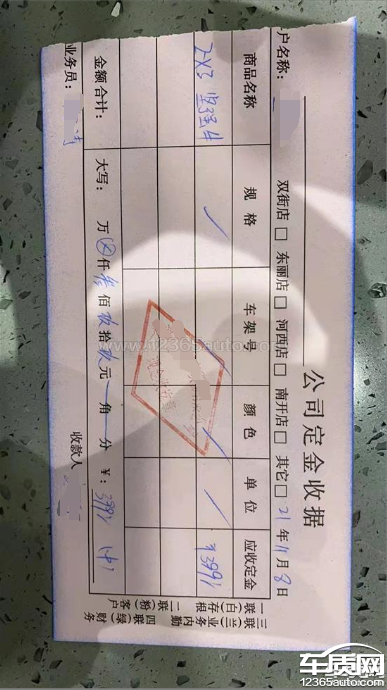 公司定金收据
户名称：
双街店□ 东丽店□ 河西店□ 南开店□ 其它□ 21年11月8日
商品名称 规格 车架号 颜色 单位 应收定金
¥399/
金额合计： 大写： 万 仟 佰 拾 元 角 分 ¥： 399/
业务员： 收款人
一联（白）存根
二联（粉）客户
三联（兰）业务内勤
四联（绿）财务
www.12365auto.com
车质网
12365auto.com